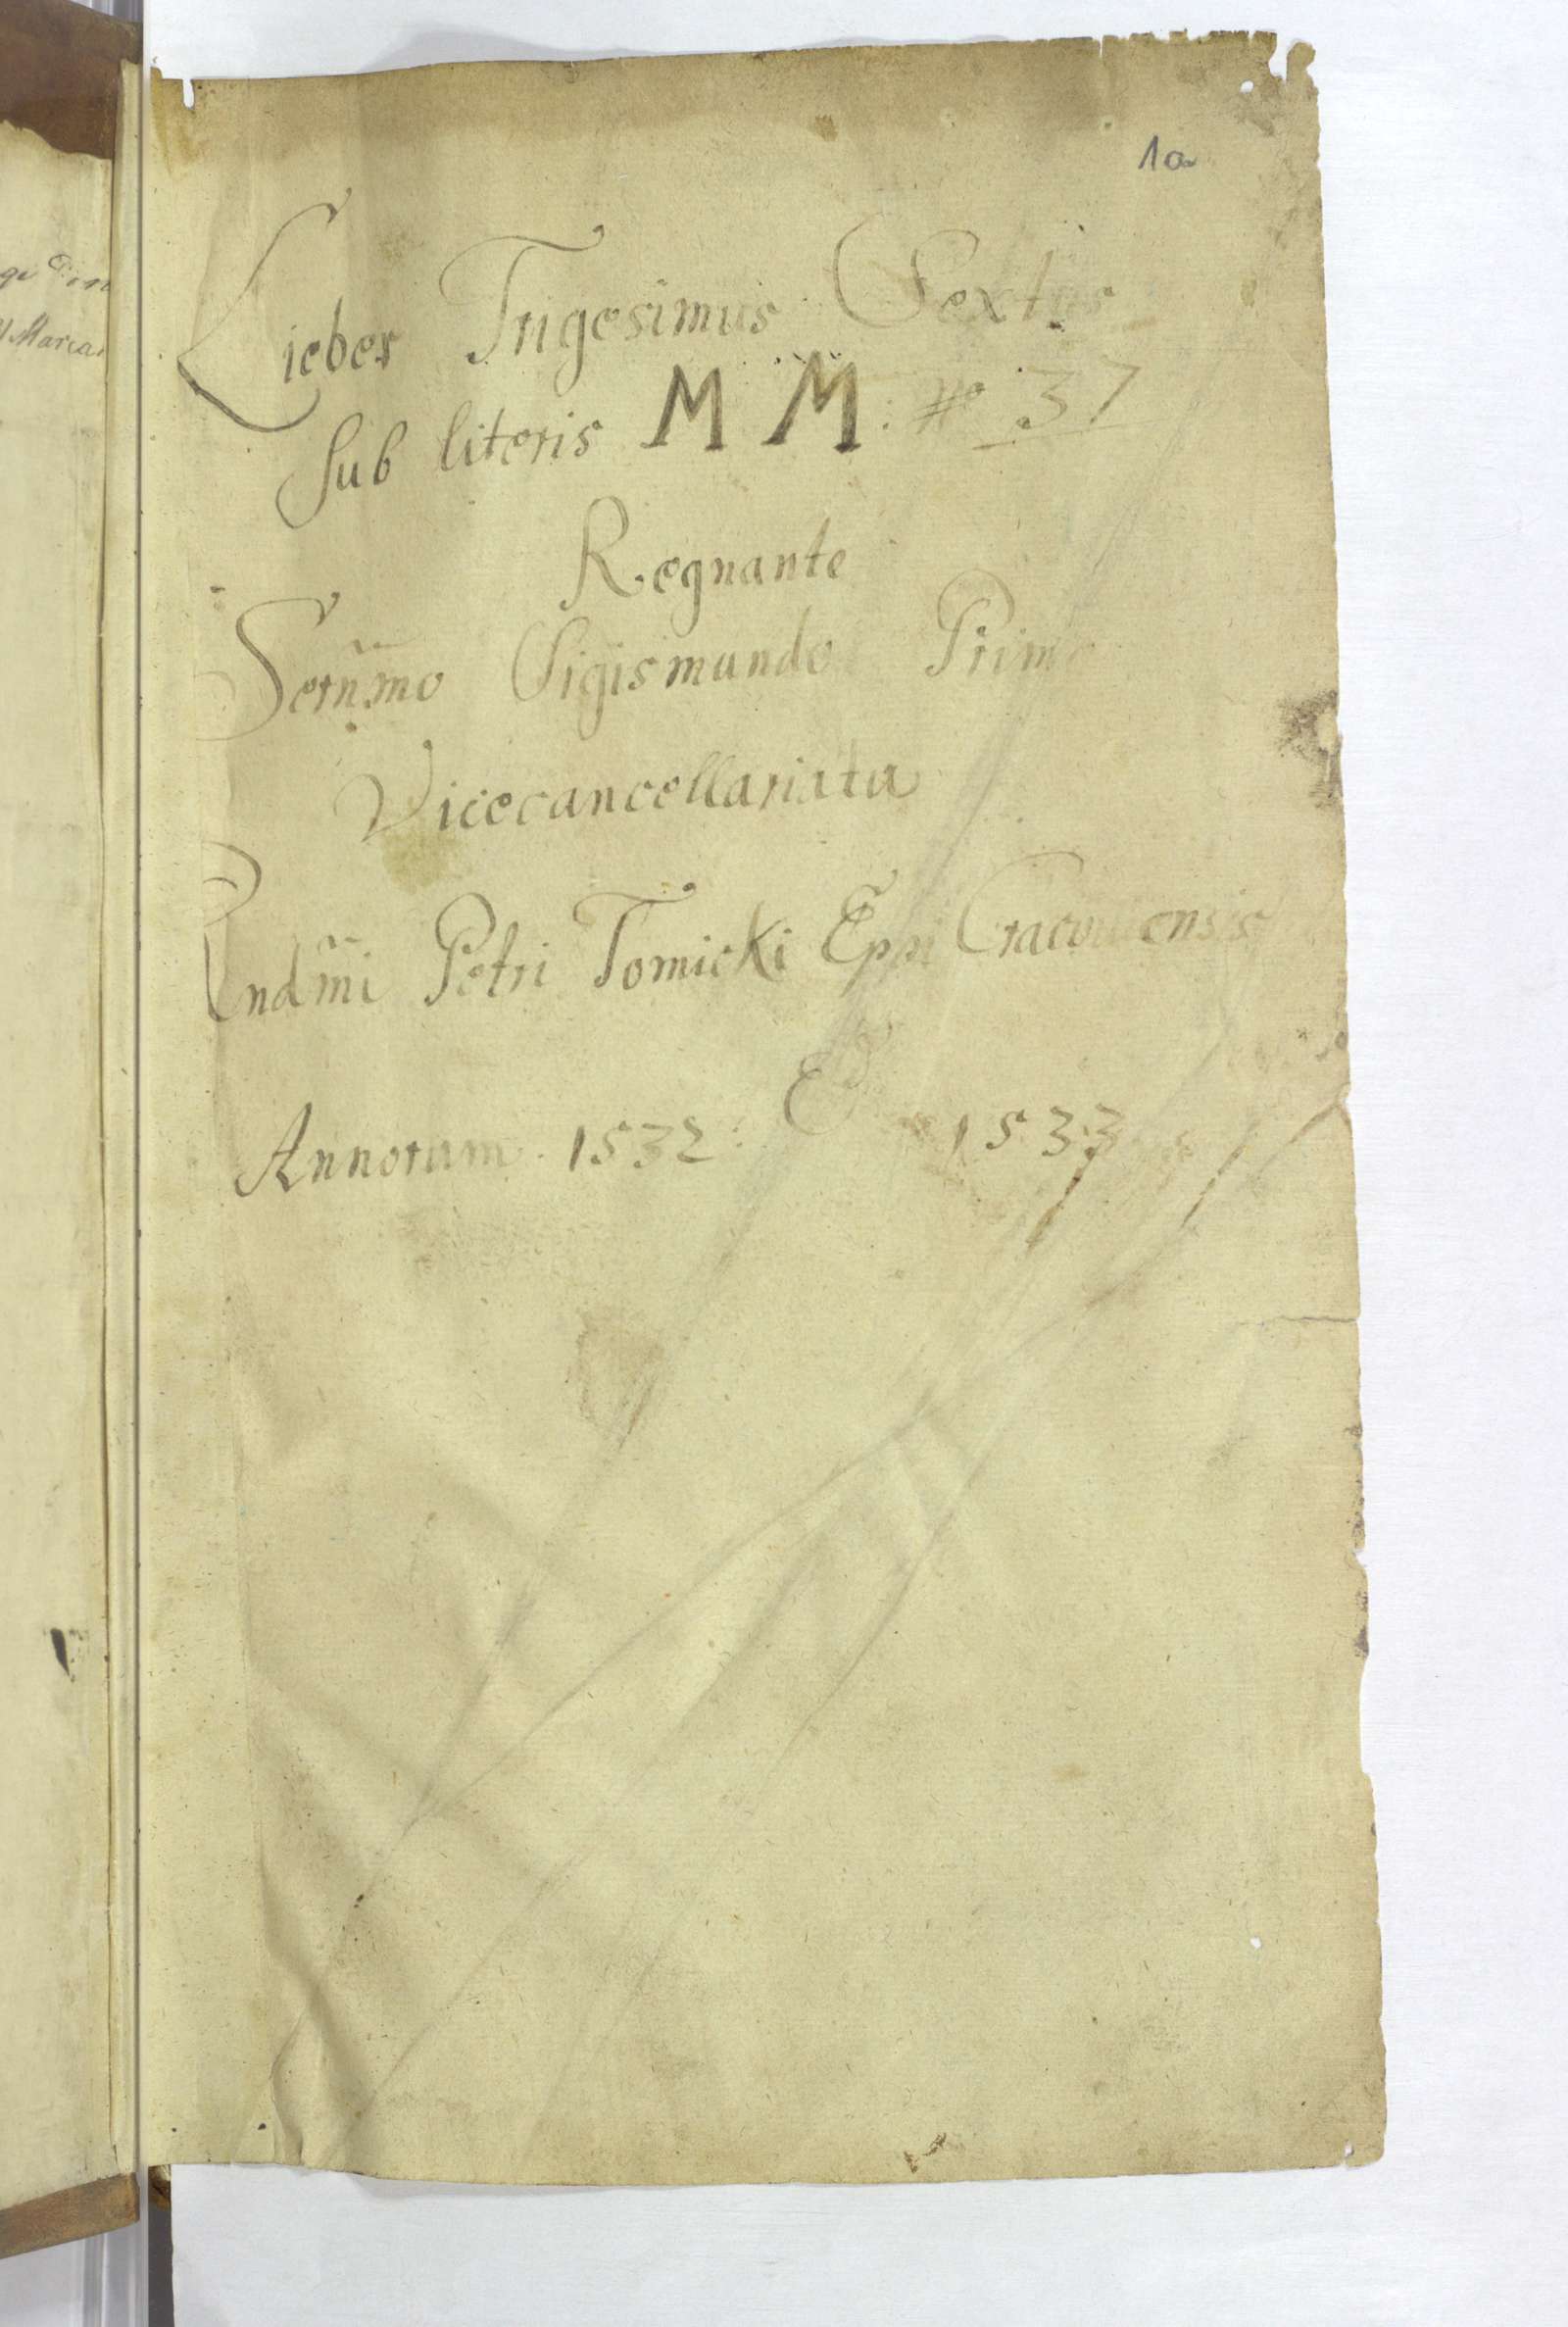 1a
Lieber Trigesimus Sextus
Sub literis M M: # 37
Regnante
Serñmo Sigismundo Primo
Vicecancellariatu
Rndm̃i Petri Tomicki Epp̃i Cracoviensis
Annorum 1532: Et 1533